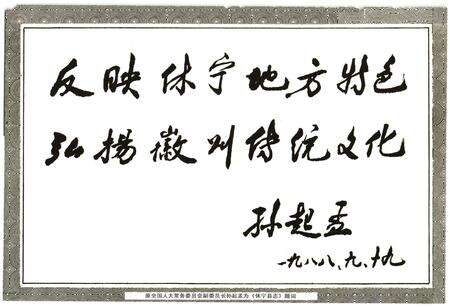 反映休宁地方特色
弘扬徽州传统文化
孙起孟
一九八八、九、十九
原全国人大常务委员会副委员长孙起孟为《休宁县志》题词